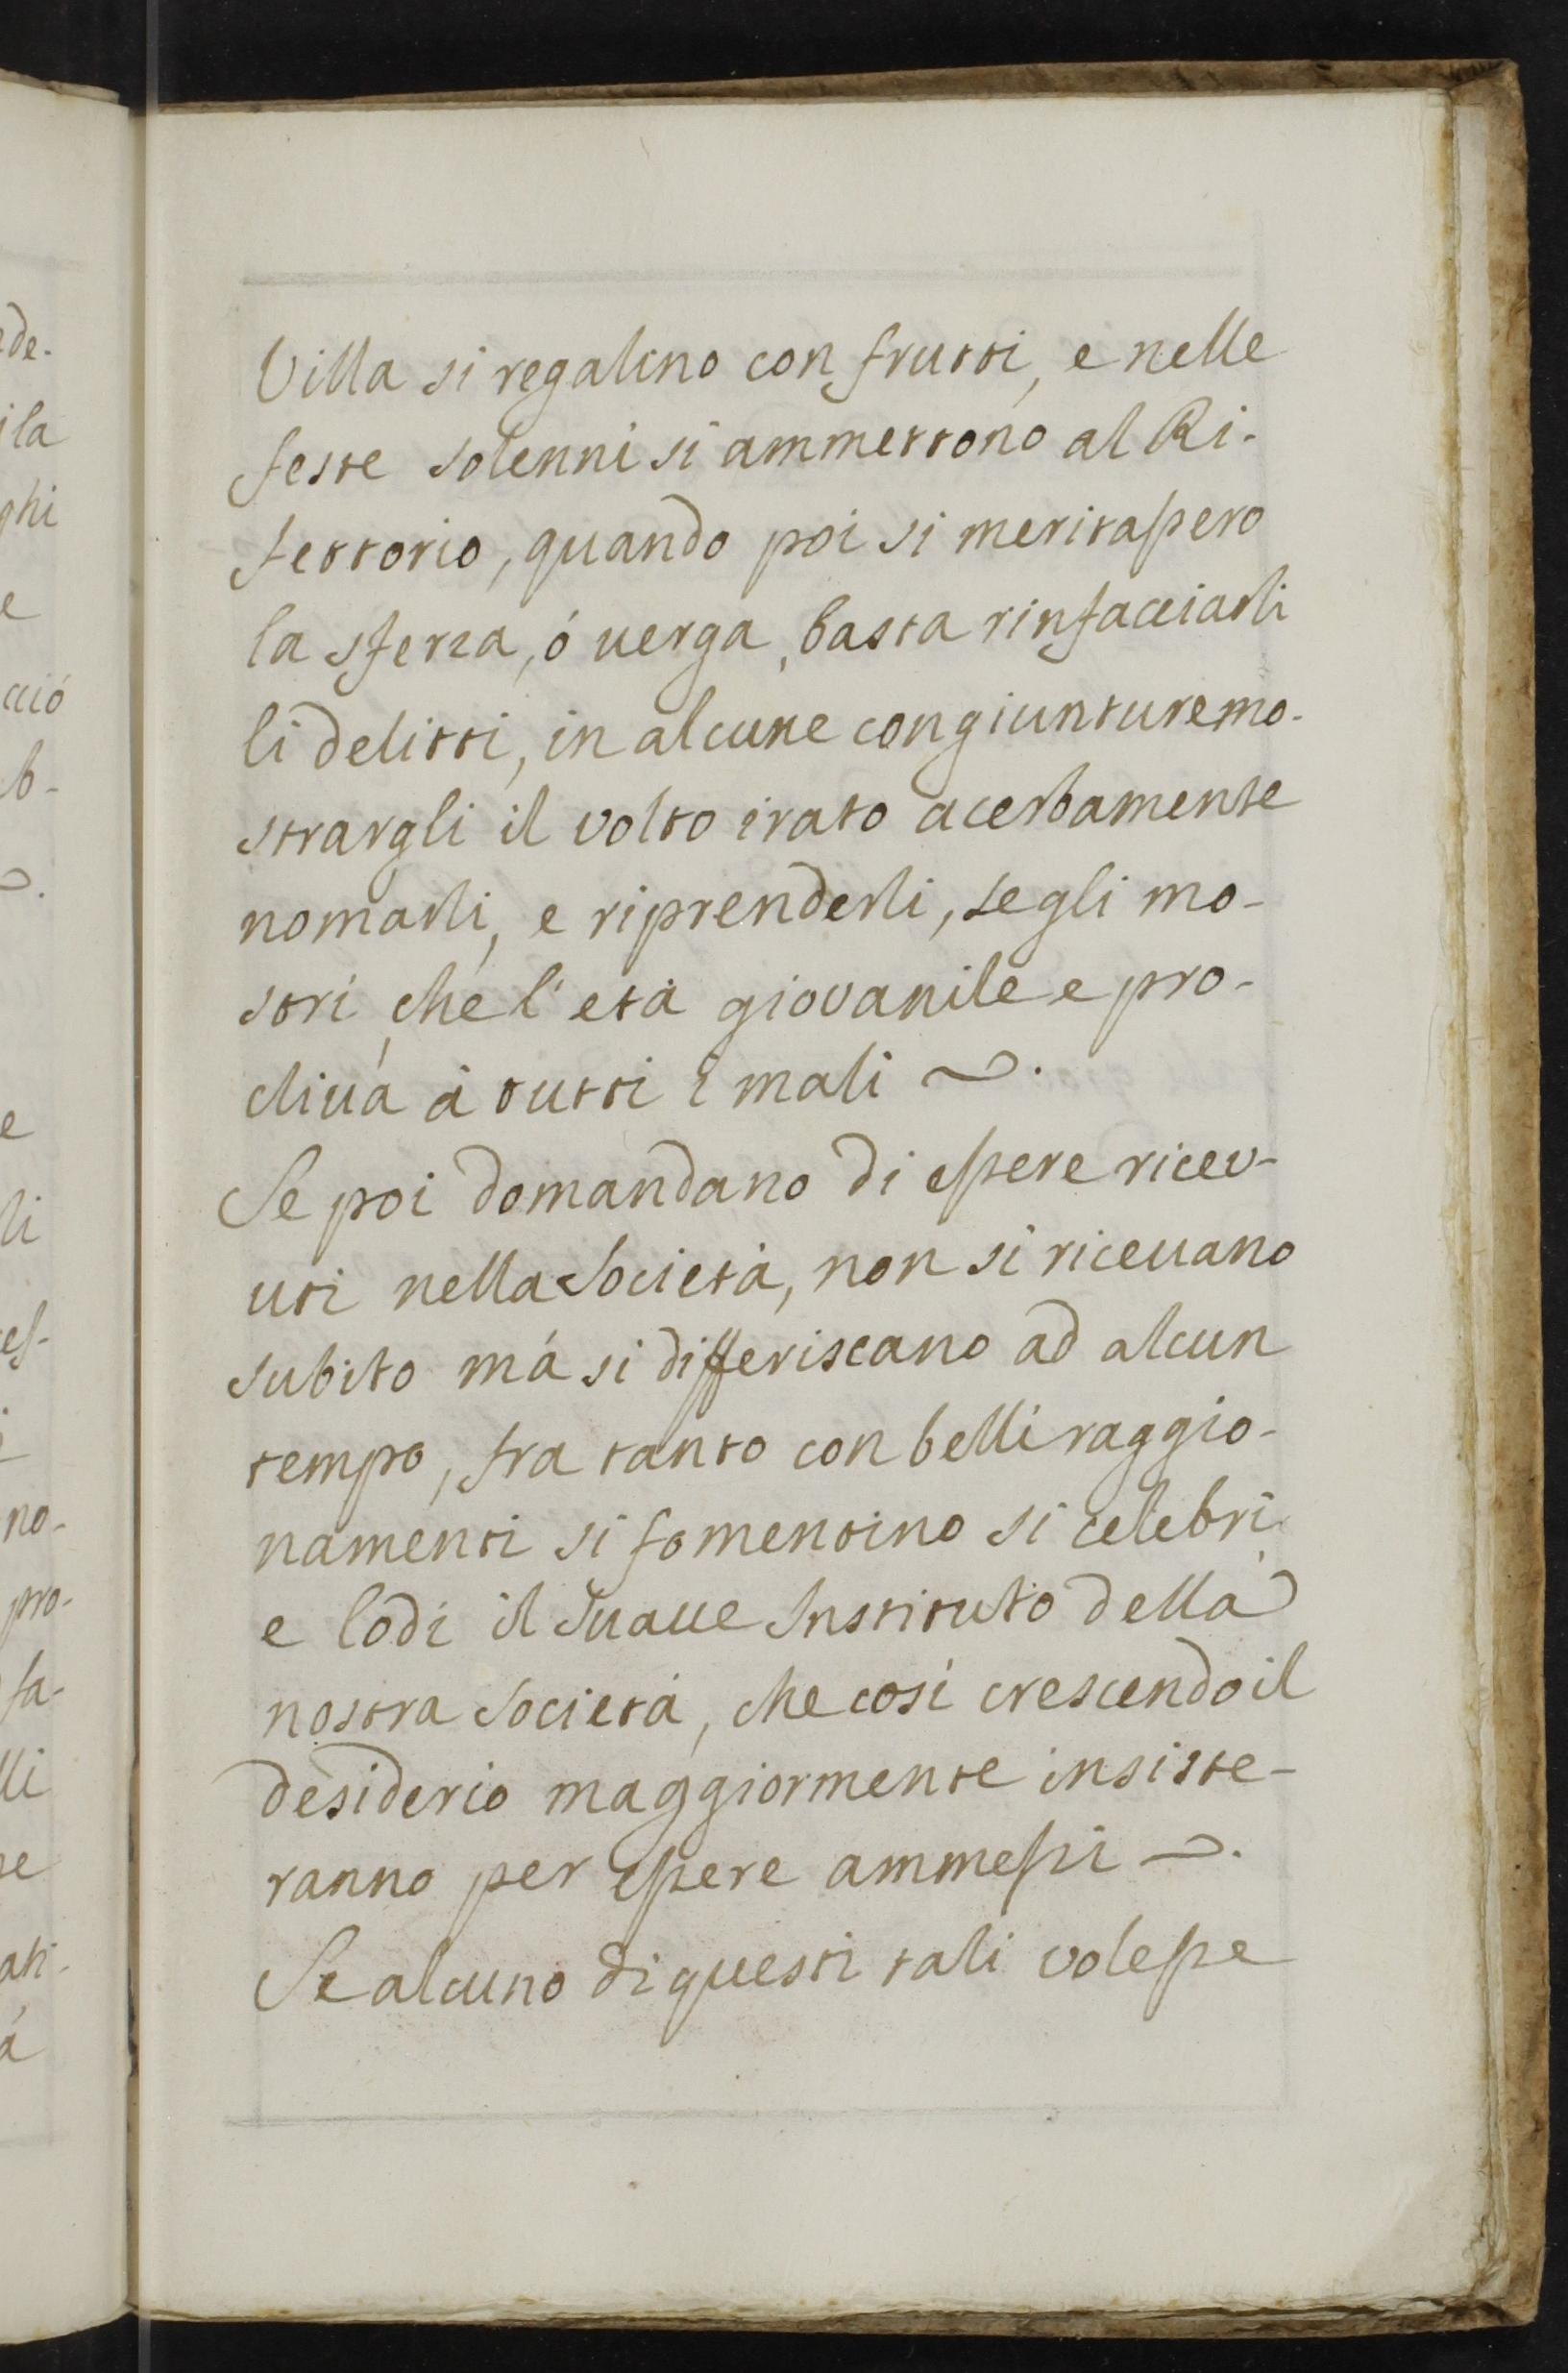 Villa si regalino con frutti, e nelle
feste solenni si ammettono al Ri-
fettorio, quando poi si meritassero
la sferza, ó uerga, basta rinfacciarli
li delitti, in alcune congiunture mo-
strargli il volto irato acerbamente
nomarli, e riprenderli, segli mo-
stri, che l'età giovanile e pro-
cliua à tutti i mali ~.
Se poi domandano di essere ricev-
uti nella Società, non si riceuano
subito má si differiscano ad alcun
tempo, fra tanto con belli raggio-
namenti si fomentino si celebri,
e lodi il Suaue Instituto della
nostra Società, che cosi crescendo il
desiderio maggiormente insiste-
ranno per essere ammessi ~.
Se alcuno di questi tali volesse
ede.
i la
ghi
e
cció
b-
e
li
es-
no-
pro-
fa-
lli
ati-
á